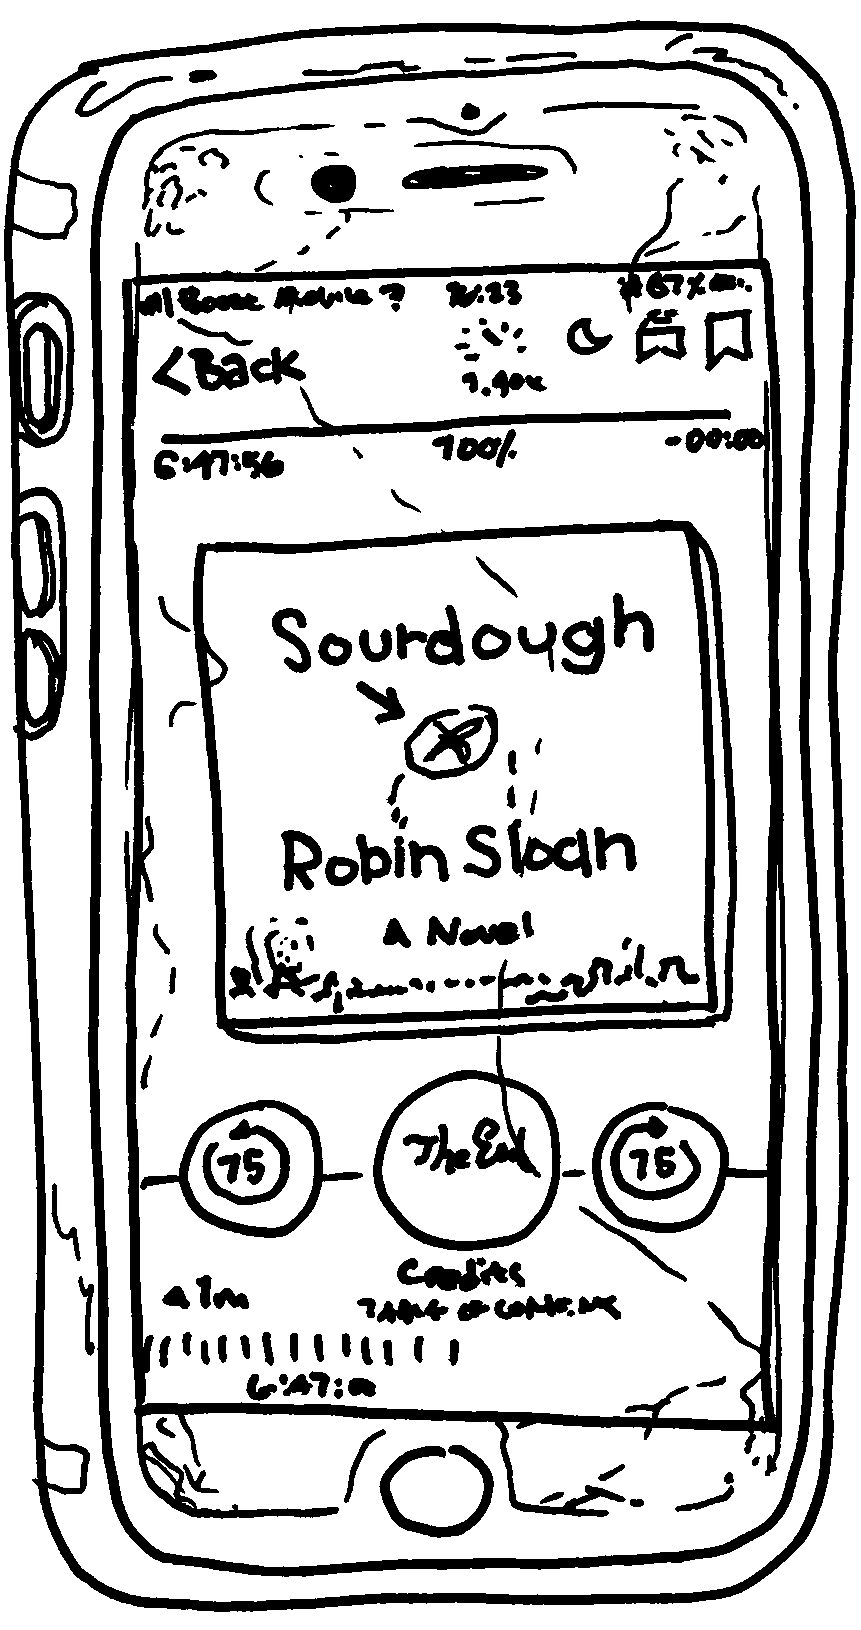 Boost Mobile
67%
<Back
1.40x
6:47:56 100% -00:00
Sourdough
Robin Sloan
A Novel
15 The End 15
Credits
1m TABLE OF CONTENTS
6:47:00